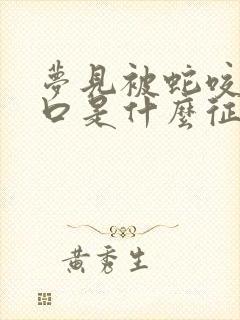 夢見被蛇咬
口是什麼征
黃秀生